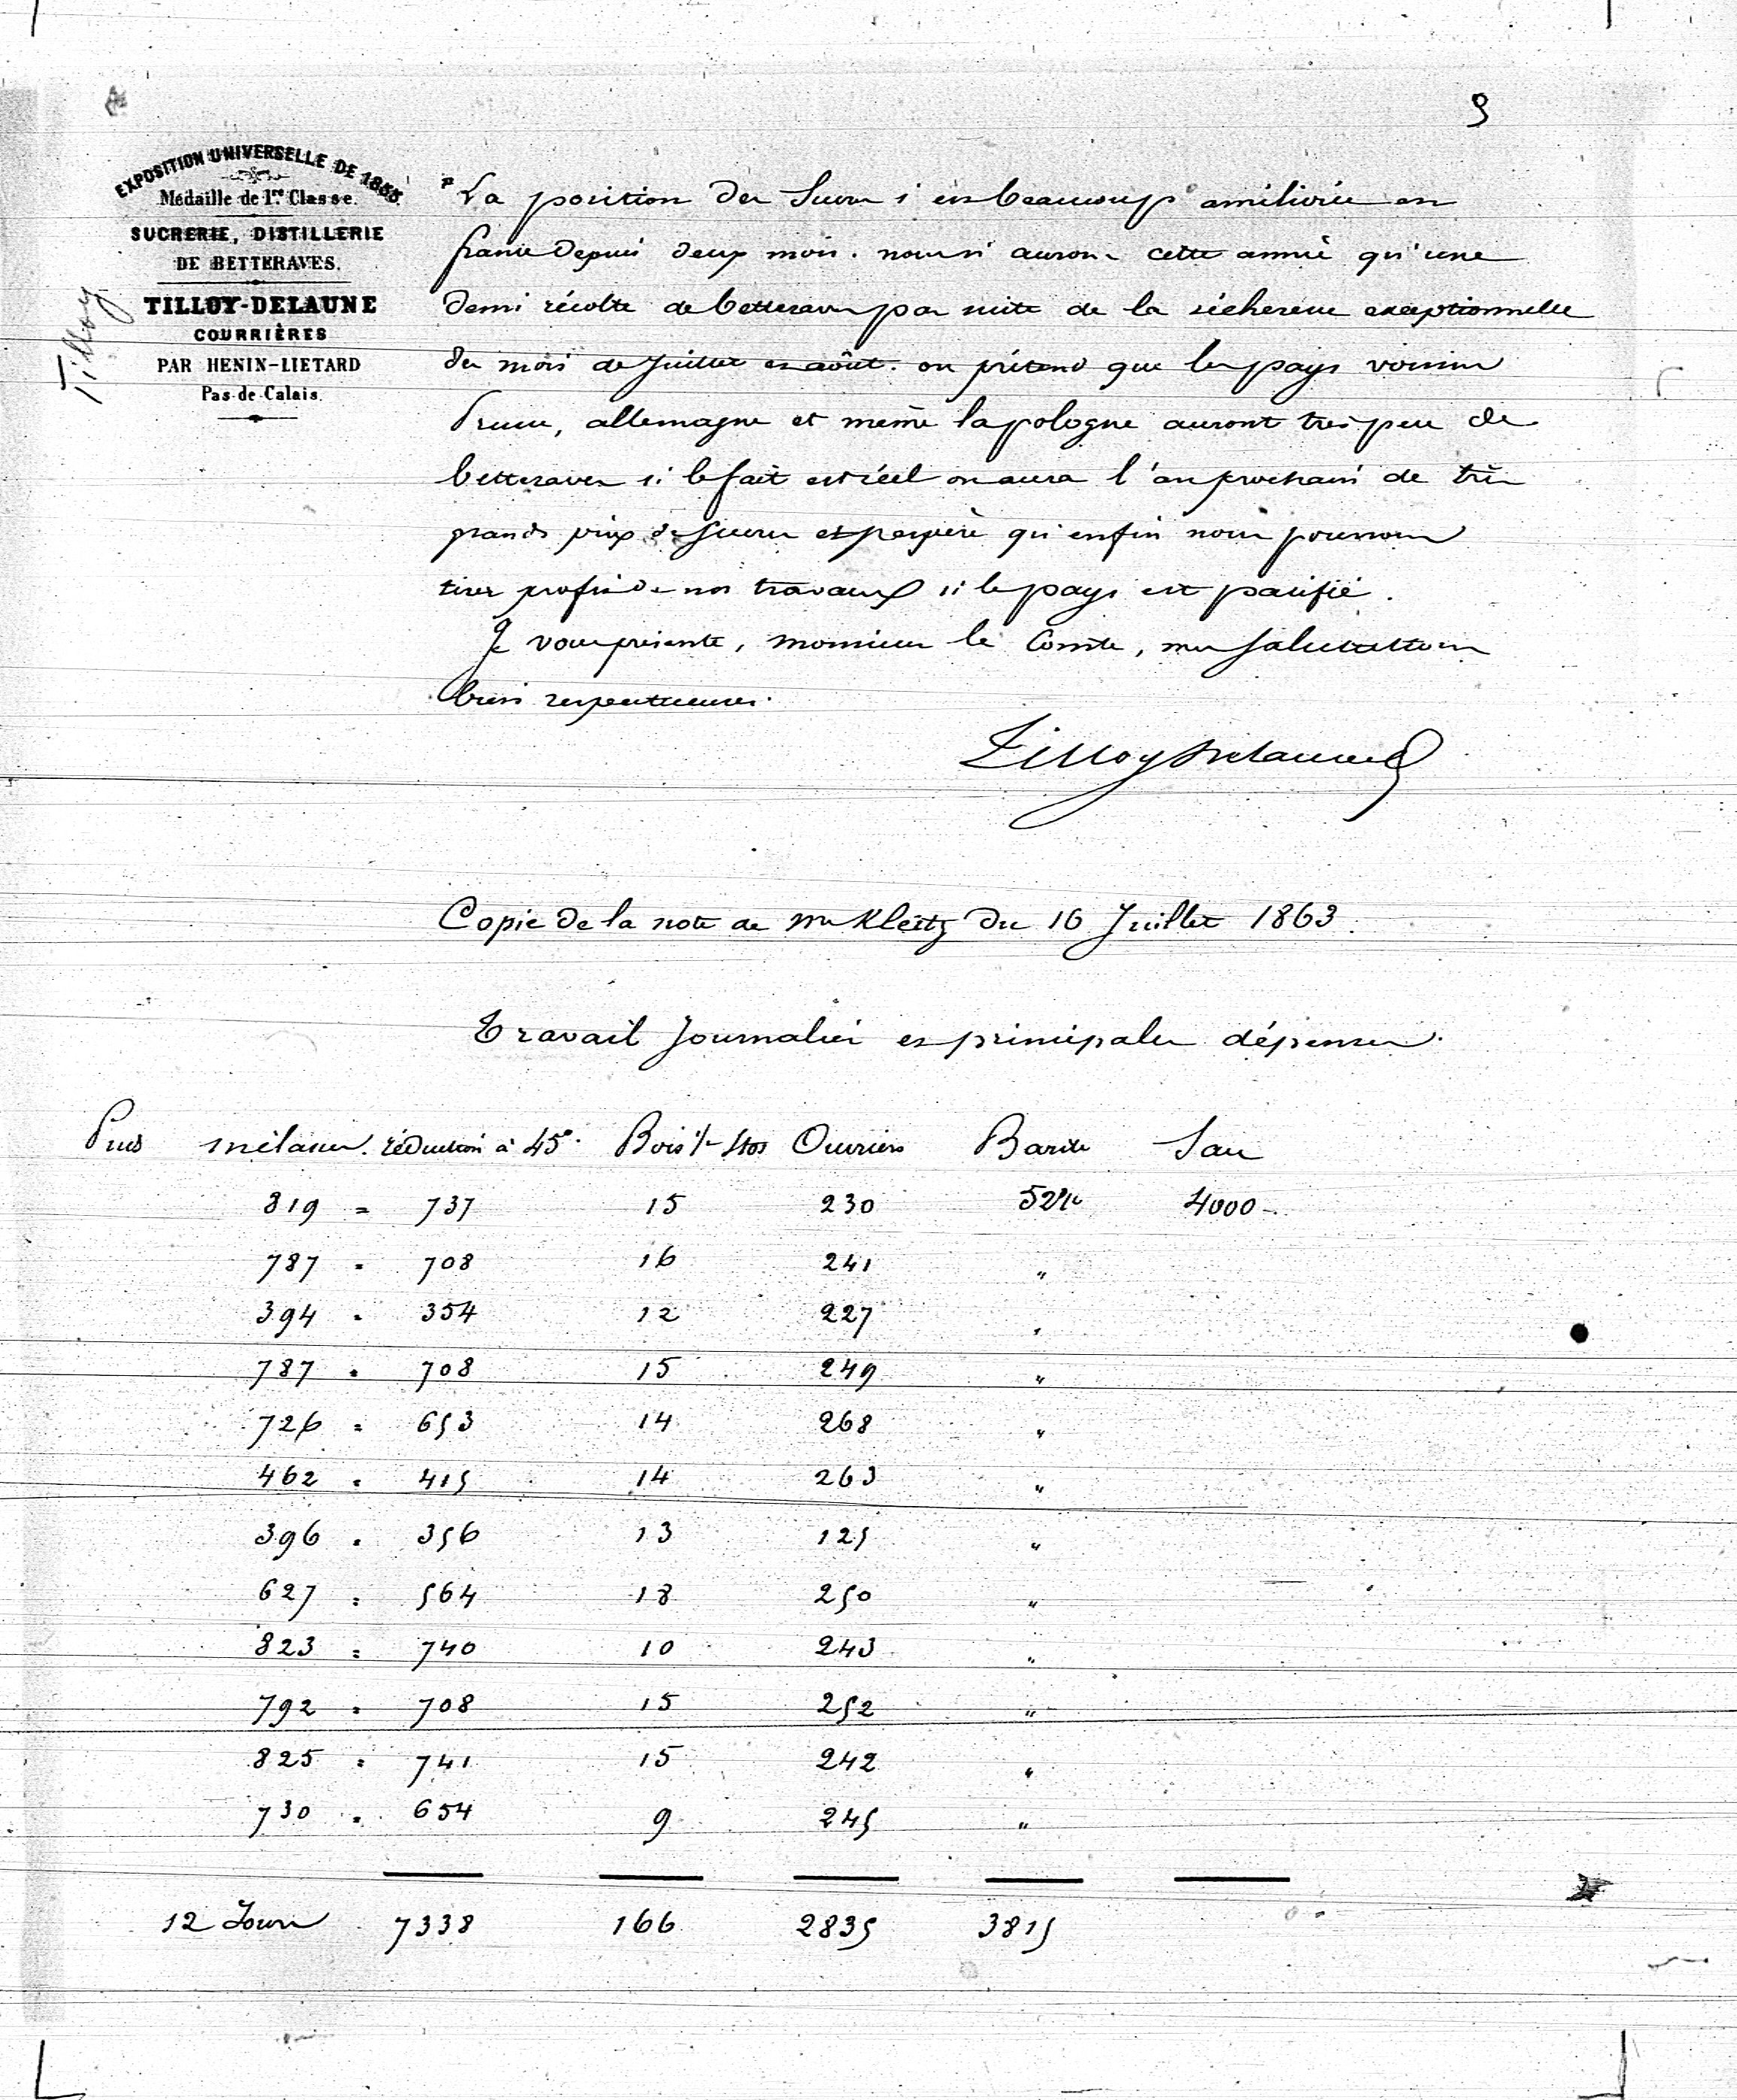 9
EXPOSITION UNIVERSELLE DE 1855
Médaille de 1re Classe.
SUCRERIE, DISTILLERIE
DE BETTERAVES.
TILLOY-DELAUNE
COURRIÈRES
PAR HENIN-LIETARD
Pas-de-Calais.
Tilloy
La position des Sucres s'est beaucoup améliorée en
france depuis deux mois. nous n'aurons cette année qu'une
demi récolte de betteraves par suite de la sécheresse exceptionnelle
des mois de Juillet et août. on prétend que les pays voisins
Prusse, allemagne et même la pologne auront très peu de
betteraves si le fait est réel on aura l'an prochain de très
grands prix de sucres et j'espère qu'enfin nous pourrons
tirer profit de nos travaux si le pays est pacifié.
Je vous présente, monsieur le Comte, mes salutations
bien respectueuses.
Tilloy Delaune
Copie de la note de Mr Kleitz du 16 Juillet 1863.
Travail Journalier et principales dépenses.
mélasses. réduction à 45°. Bois Ouvriers
819 = 737 15 230 4000
787 = 708 16 241 "
394 = 354 12 227 "
787 = 708 15 249 "
726 = 653 14 268 "
462 = 415 14 263 "
396 = 356 13 125 "
627 = 564 18 250 "
823 = 740 10 243 "
792 = 708 15 252 "
825 = 741 15 242 "
730 = 654 9 245 "
12 Jours 7338 166 2835 3815